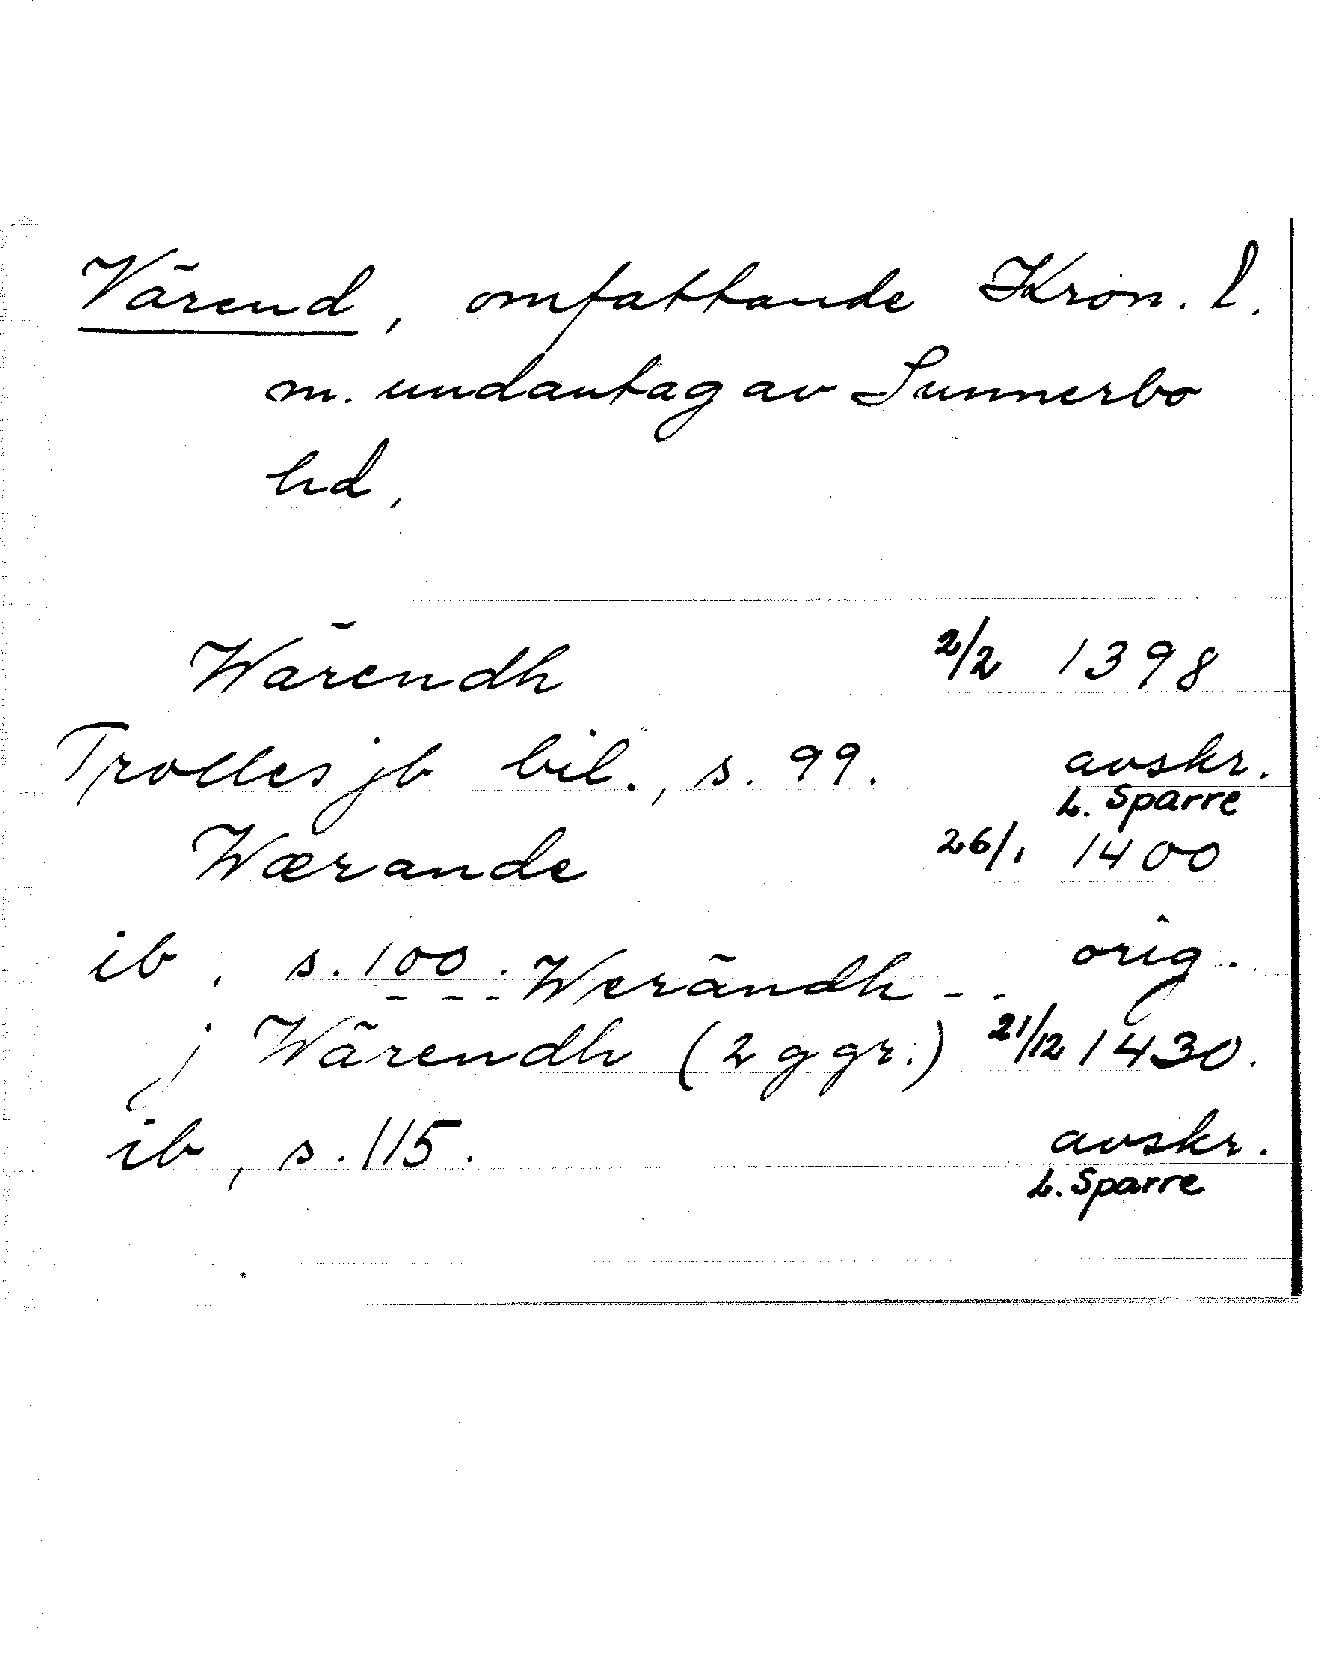 Värend, omfattande Kron. l.
m. undantag av Sunnerbo
hd,
Wärendh 2/2 1398
Trolles jb bil., s. 99. avskr.
L. Sparre
Wærande 26/1 1400
ib, s. 100. orig.
- - - Werändh - -
j Wärendh (2 ggr.) 21/12 1430.
ib, s. 115. avskr.
L. Sparre